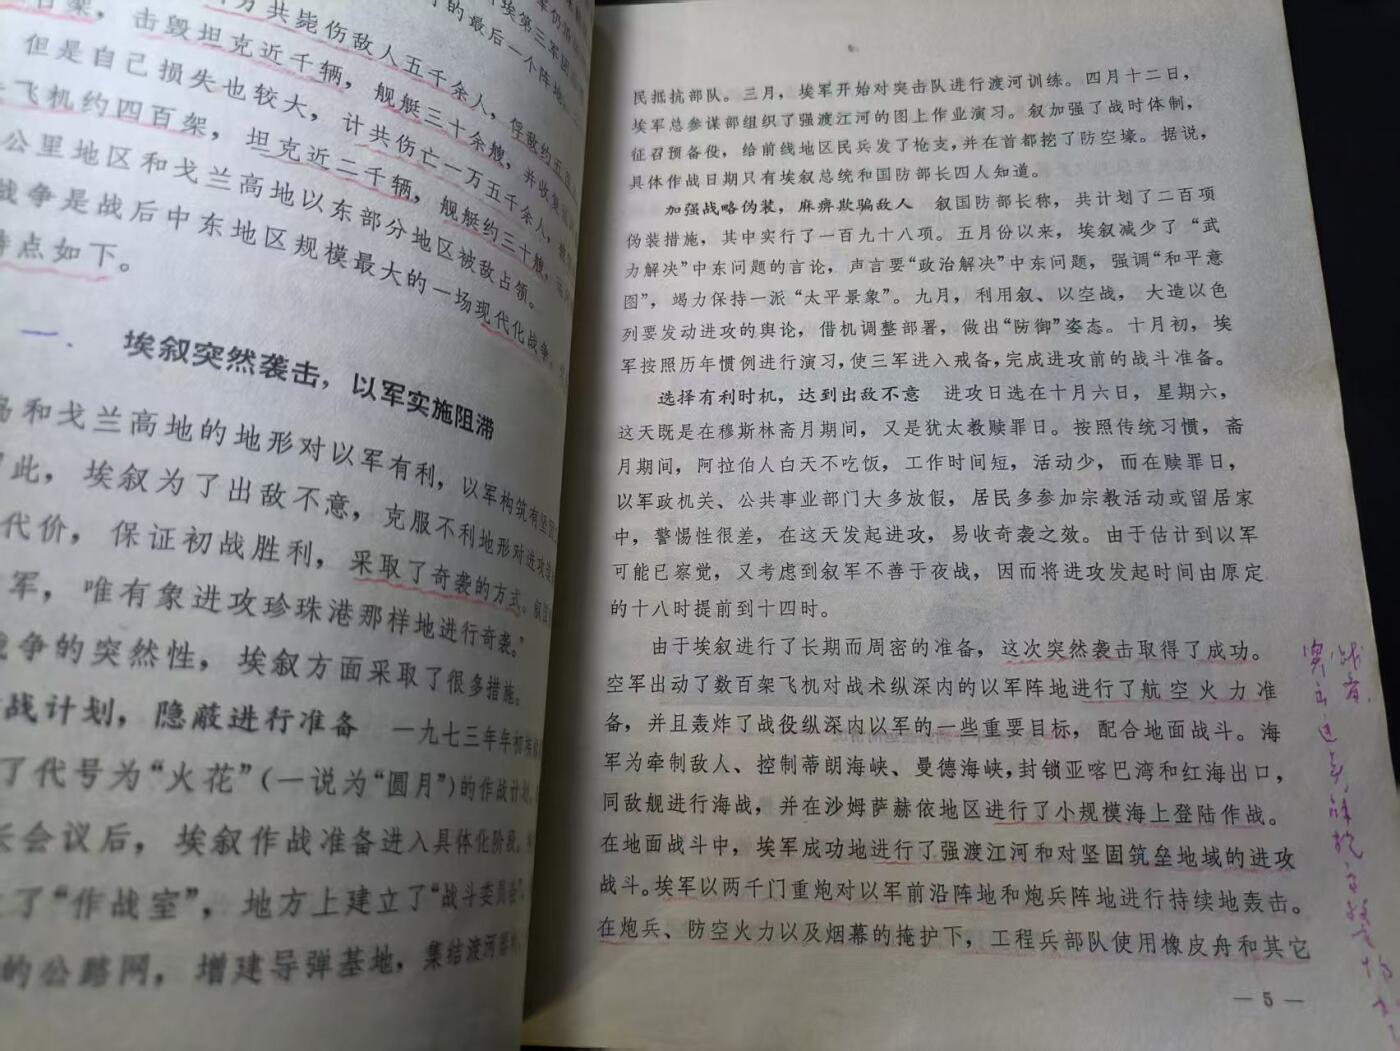 分共毙伤敌人五千余人，俘敌约五
击毁坦克近千辆，舰艇三十余艘，并收复
但是自己损失也较大，计共伤亡一万五千余人，
飞机约四百架，坦克近二千辆，舰艇约三十艘，
公里地区和戈兰高地以东部分地区被敌占领。
战争是战后中东地区规模最大的一场现代化战争，
特点如下。
一．埃叙突然袭击，以军实施阻滞
和戈兰高地的地形对以军有利，以军构筑有坚
此，埃叙为了出敌不意，克服不利地形对进攻
代价，保证初战胜利，采取了奇袭的方式。叙
军，唯有象进攻珍珠港那样地进行奇袭。”
战争的突然性，埃叙方面采取了很多措施。
战计划，隐蔽进行准备 一九七三年年初
了代号为“火花”（一说为“圆月”）的作战计划，
长会议后，埃叙作战准备进入具体化阶段，
了“作战室”，地方上建立了“战斗委员会”，
的公路网，增建导弹基地，集结渡河器材，
民抵抗部队。三月，埃军开始对突击队进行渡河训练。四月十二日，
埃军总参谋部组织了强渡江河的图上作业演习。叙加强了战时体制，
征召预备役，给前线地区民兵发了枪支，并在首都挖了防空壕。据说，
具体作战日期只有埃叙总统和国防部长四人知道。
加强战略伪装，麻痹欺骗敌人 叙国防部长称，共计划了二百项
伪装措施，其中实行了一百九十八项。五月份以来，埃叙减少了“武
力解决”中东问题的言论，声言要“政治解决”中东问题，强调“和平意
图”，竭力保持一派“太平景象”。九月，利用叙、以空战，大造以色
列要发动进攻的舆论，借机调整部署，做出“防御”姿态。十月初，埃
军按照历年惯例进行演习，使三军进入戒备，完成进攻前的战斗准备。
选择有利时机，达到出敌不意 进攻日选在十月六日，星期六，
这天既是在穆斯林斋月期间，又是犹太教赎罪日。按照传统习惯，斋
月期间，阿拉伯人白天不吃饭，工作时间短，活动少，而在赎罪日，
以军政机关、公共事业部门大多放假，居民多参加宗教活动或留居家
中，警惕性很差，在这天发起进攻，易收奇袭之效。由于估计到以军
可能已察觉，又考虑到叙军不善于夜战，因而将进攻发起时间由原定
的十八时提前到十四时。
由于埃叙进行了长期而周密的准备，这次突然袭击取得了成功。
空军出动了数百架飞机对战术纵深内的以军阵地进行了航空火力准
备，并且轰炸了战役纵深内以军的一些重要目标，配合地面战斗。海
军为牵制敌人、控制蒂朗海峡、曼德海峡，封锁亚喀巴湾和红海出口，
同敌舰进行海战，并在沙姆萨赫依地区进行了小规模海上登陆作战。
在地面战斗中，埃军成功地进行了强渡江河和对坚固筑垒地域的进攻
战斗。埃军以两千门重炮对以军前沿阵地和炮兵阵地进行持续地轰击。
在炮兵、防空火力以及烟幕的掩护下，工程兵部队使用橡皮舟和其它
— 5 —